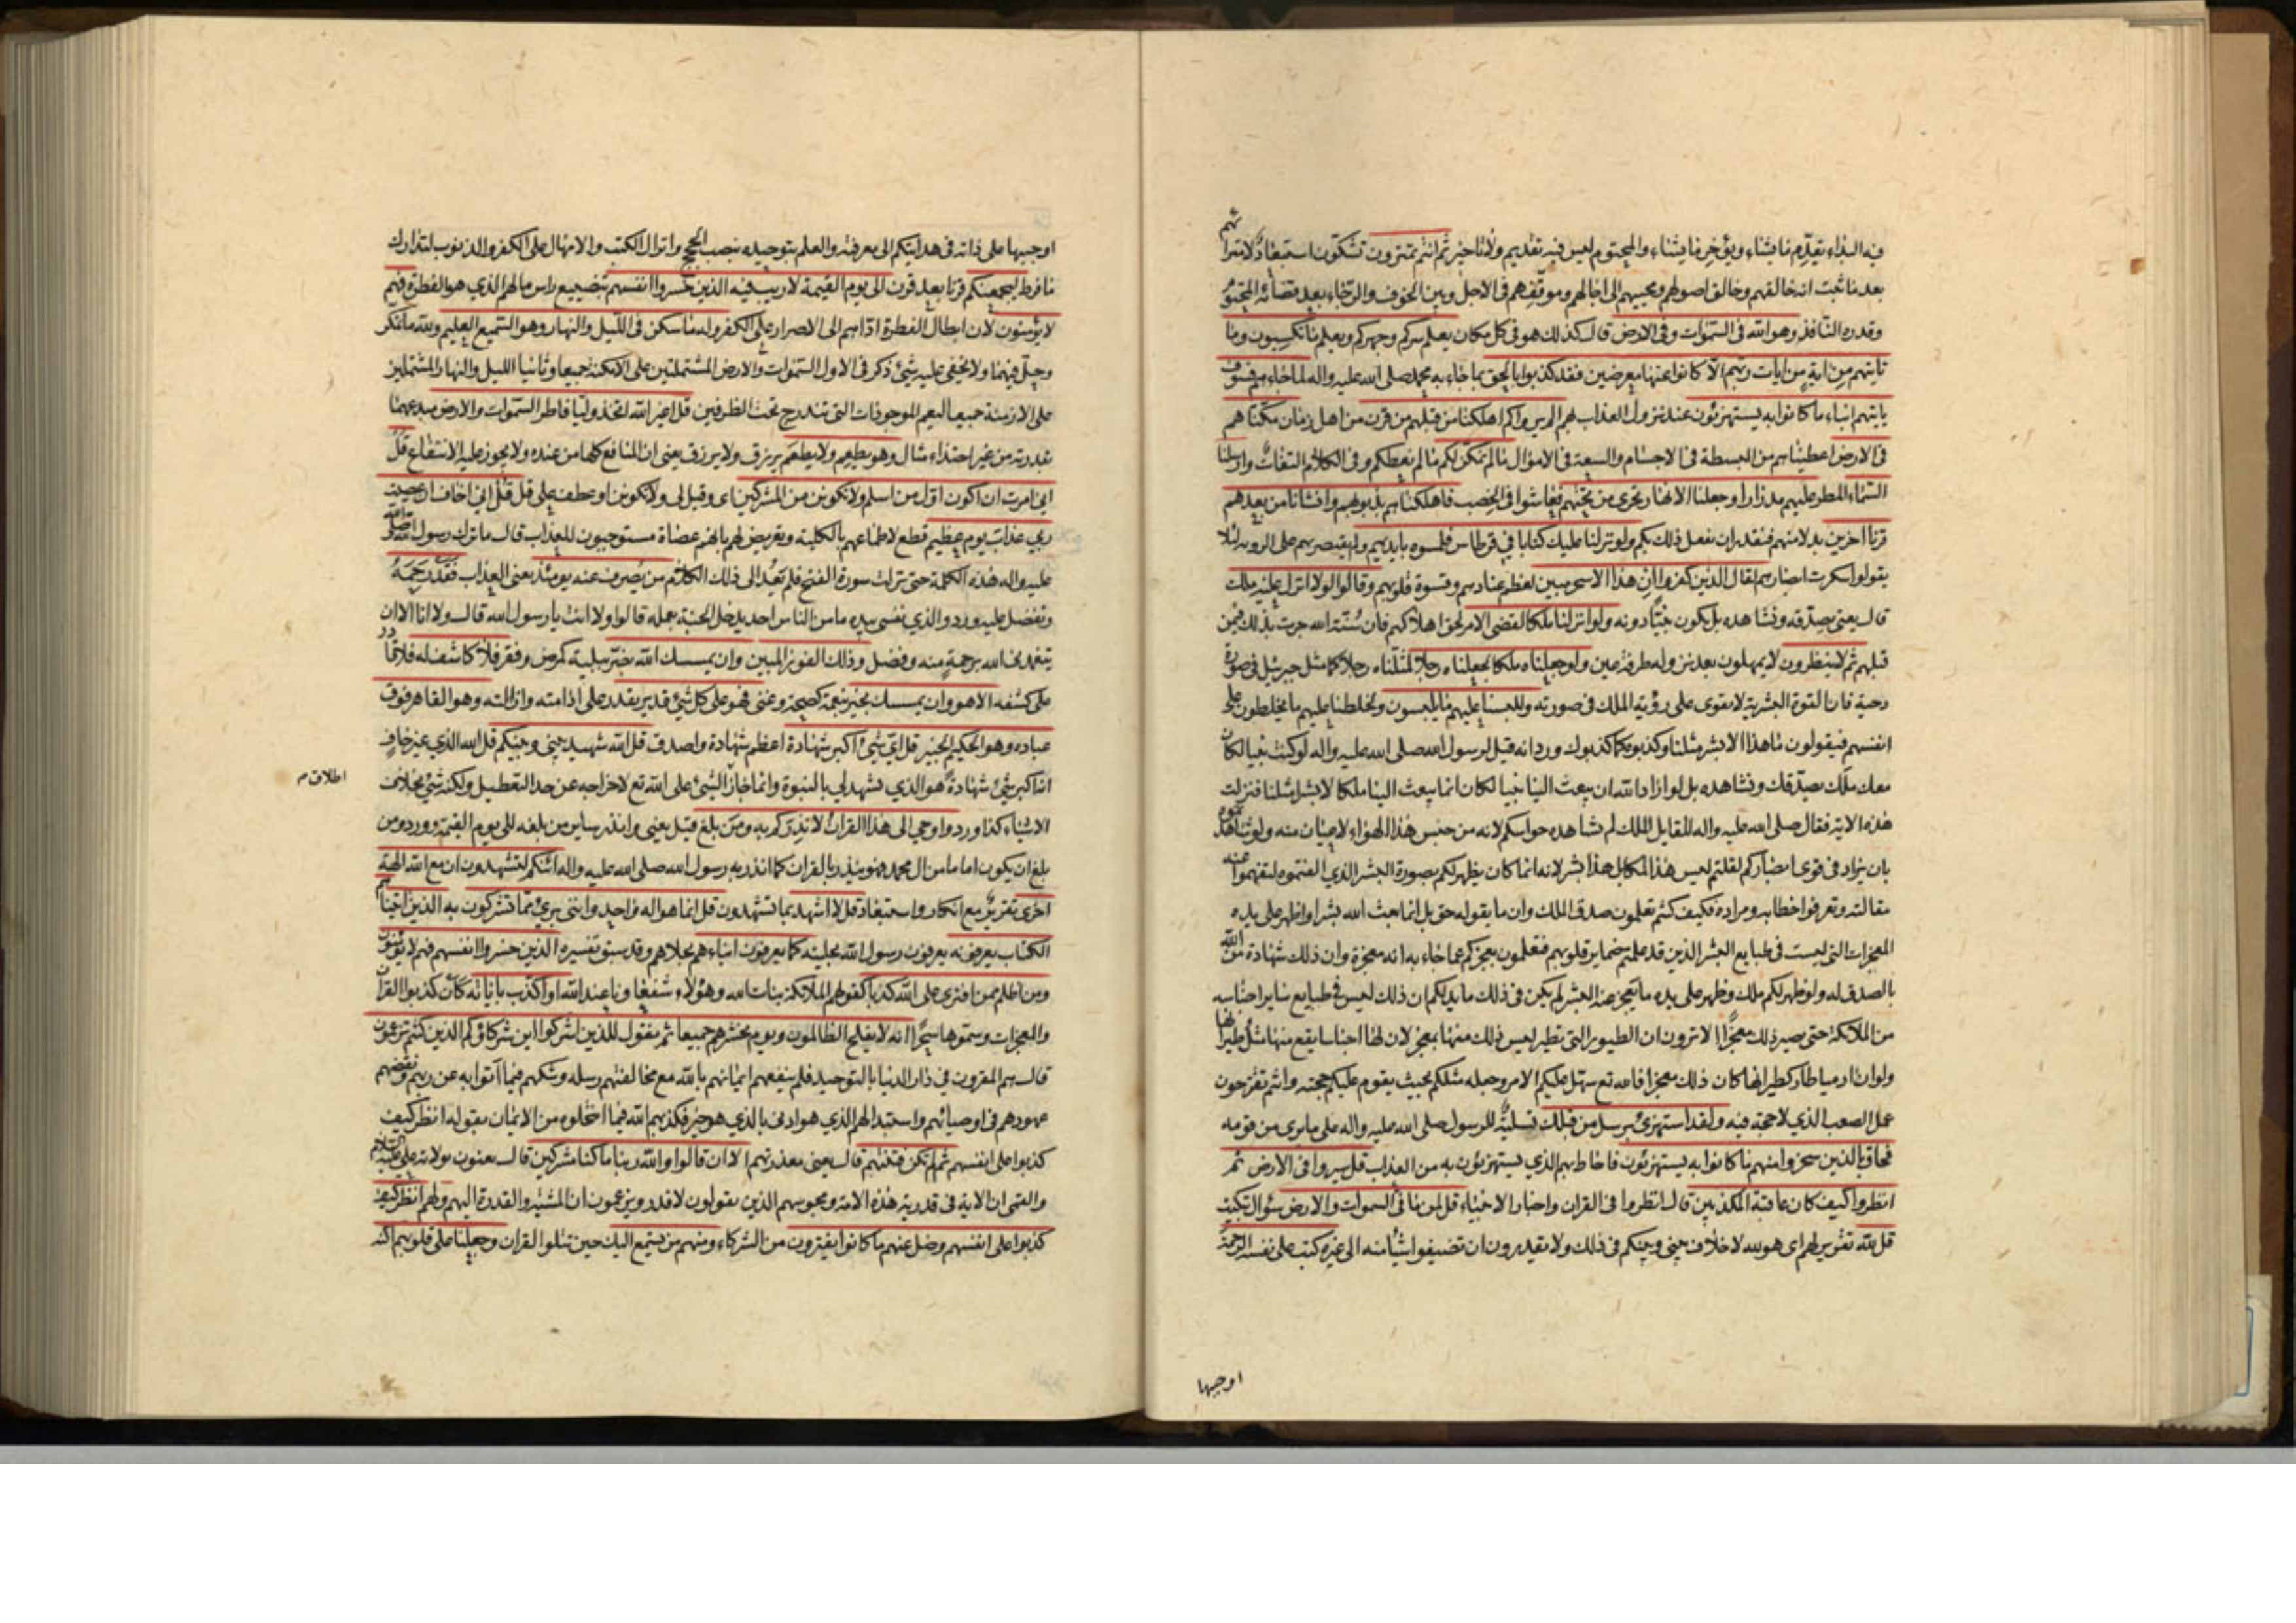 فيه البداء يقدم ما يشاء ويؤخر ما يشاء والمحتوم ليس فيه تقديم ولا تاخير ثم انتم تمترون تشكون استبعاد لامترائهم
بعد ما ثبت انه خالقهم وخالق اصولهم ومحييهم الى اجالهم وموقفهم في الاجل وبين الخوف والرجاء بعد قضائه المحتوم
وقدره النافذ وهو الله في السموات وفي الارض قال كذلك هو في كل مكان يعلم سركم وجهركم ويعلم ما تكسبون وما
تاتيهم من اية من ايات ربهم الا كانوا عنها معرضين فقد كذبوا بالحق بما جاء به محمد صلى الله عليه واله لما جاءهم فسوف
ياتيهم انباء ما كانوا به يستهزئون عند نزول العذاب بهم الم يروا كم اهلكنا من قبلهم من قرن من اهل زمان مكناهم
في الارض اعطيناهم من البسطة في الاجسام والسعة في الاموال ما لم نمكن لكم ما لم نعطكم وفي الكلام التفات وارسلنا
السماء المطر عليهم مدرارا وجعلنا الانهار تجري من تحتهم فعاشوا في الخصب فاهلكناهم بذنوبهم وانشانا من بعدهم
قرنا اخرين بدلا منهم فنقدر ان نفعل ذلك بكم ولو نزلنا عليك كتابا في قرطاس فلمسوه بايديهم ولم يقتصر بهم على الروية لئلا
يقولوا سكرت ابصارهم لقال الذين كفروا ان هذا الا سحر مبين لعظم عنادهم وقسوة قلوبهم وقالوا لولا انزل عليه ملك
قال يعني يصدقه ونشاهده بل يكون نبيا دونه ولو انزلنا ملكا لقضي الامر لحق اهلاكهم فان سنة الله جرت بذلك فيمن
قبلهم ثم لا ينظرون لا يمهلون بعد نزوله طرفة عين ولو جعلناه ملكا لجعلناه رجلا لمثلناه رجلا كما مثل جبرئيل في صورة
دحية فان القوة البشرية لا تقوى على رؤية الملك في صورته وللبسنا عليهم ما يلبسون ولخلطنا عليهم ما يخلطون على
انفسهم فيقولون ما هذا الا بشر مثلنا وكذبوه كما كذبوك ورد انه قيل لرسول الله صلى الله عليه واله لو كنت نبيا لكان
معك ملك يصدقك ونشاهده بل لو اراد الله ان يبعث الينا نبيا لكان انما يبعث الينا ملكا لا بشرا مثلنا فنزلت
هذه الاية فقال صلى الله عليه واله للقايل الملك لم تشاهده حواسكم لانه من جنس هذا الهواء لا عيان منه ولو شاهدتموه
بان يزاد في قوى ابصاركم لقلتم ليس هذا ملكا بل هذا بشر لانه انما كان يظهر لكم بصورة البشر الذي الفتموه لتفهموا عنه
مقالته وتعرفوا خطابه ومراده فكيف كنتم تعلمون صدق الملك وان ما يقوله حق بل انما بعث الله بشرا واظهر على يده
المعجزات التي ليست في طبايع البشر الذين قد علمتم ضماير قلوبهم فتعلمون بعجزكم عما جاء به انه معجزة وان ذلك شهادة من الله
بالصدق له ولو ظهر لكم ملك وظهر على يده ما يعجز عنه البشر لم يكن في ذلك ما يدلكم ان ذلك ليس في طبايع ساير اجناسه
من الملائكة حتى يصير ذلك معجزا الا ترون ان الطيور التي تطير ليس ذلك منها بمعجز لان لها اجناسا يقع منها مثل طيرانها
ولو ان ادميا طار كطيرانها كان ذلك معجزا فالله تع سهل عليكم الامر وجعله مثلكم بحيث يقوم عليكم حجته وانتم تقترحون
عمل الصعب الذي لا حجة فيه ولقد استهزئ برسل من قبلك تسلية للرسول صلى الله عليه واله على ما يرى من قومه
فحاق بالذين سخروا منهم ما كانوا به يستهزئون فاحاط بهم الذي يستهزئون به من العذاب قل سيروا في الارض ثم
انظروا كيف كان عاقبة المكذبين قال انظروا في القران واخبار الانبياء قل لمن ما في السموات والارض سؤال تبكيت
قل لله تقرير لهم اي هو لله لا خلاف بيني وبينكم في ذلك ولا تقدرون ان تضيفوا شيئا منه الى غيره كتب على نفسه الرحمة
اوجبها
اوجبها على ذاته في هدايتكم الى معرفته والعلم بتوحيده بنصب الحجج وانزال الكتب والامهال على الكفر والذنوب لتدارك
ما فرط ليجمعنكم قرنا بعد قرن الى يوم القيمة لا ريب فيه الذين خسروا انفسهم بتضييع راس مالهم الذي هو الفطرة فهم
لا يؤمنون لان ابطال الفطرة اداهم الى الاصرار على الكفر وله ما سكن في الليل والنهار وهو السميع العليم ولله ما تمكن
وحل فيهما ولا يخفى عليه شيئ ذكر في الاول السموات والارض المشتملتين على الامكنة جميعا وثانيا الليل والنهار المشتملين
على الازمنة جميعا ليعم الموجودات التي تندرج تحت الظرفين قل اغير الله اتخذ وليا فاطر السموات والارض مبدعهما
بقدرته من غير احتذاء مثال وهو يطعم ولا يطعم يرزق ولا يرزق يعني ان المنافع كلها من عنده ولا يجوز عليه الانتفاع قل
اني امرت ان اكون اول من اسلم ولا تكونن من المشركين اي وقيل لي ولا تكونن او عطف على قل قل اني اخاف ان عصيت
ربي عذاب يوم عظيم قطع لاطماعهم بالكلية وتعريض لهم بانهم عصاة مستوجبون للعذاب قال ما ترك رسول الله صلى الله
عليه واله هذه الكلمة حتى نزلت سورة الفتح فلم يعد الى ذلك الكلام من يصرف عنه يومئذ يعني العذاب فقد رحمه
وتفضل عليه ورد والذي نفسي بيده ما من الناس احد يدخل الجنة بعمله قالوا ولا انت يا رسول الله قال ولا انا الا ان
يتغمدني الله برحمة منه وفضل وذلك الفوز المبين وان يمسسك الله بضر ببلية كمرض وفقر فلا كاشف له فلا قادر
على كشفه الا هو وان يمسسك بخير بنعمة كصحة وغنى فهو على كل شيئ قدير يقدر على ادامته وازالته وهو القاهر فوق
عباده وهو الحكيم الخبير قل اي شيئ اكبر شهادة اعظم شهادة واصدق قل الله شهيد بيني وبينكم قل الله الذي غير خاف
انه اكبر شيئ شهادة هو الذي يشهد لي بالنبوة وانما جاز الشيئ على الله تع لاخراجه عن حد التعطيل ولكنه شيئ بخلاف
اطلاق م
الاشياء كذا ورد واوحي الى هذا القران لانذركم به ومن بلغ قيل يعني وانذر ساير من بلغه الى يوم القيمة وورد ومن
بلغ ان يكون اماما من ال محمد فهو ينذر بالقران كما انذر به رسول الله صلى الله عليه واله ائنكم لتشهدون ان مع الله الهة
اخرى تقرير مع انكار واستبعاد قل لا اشهد بما تشهدون قل انما هو اله واحد وانني بريئ مما تشركون به الذين اتيناهم
الكتاب يعرفونه يعرفون رسول الله بحليته كما يعرفون ابناءهم بحلاهم وقد سبق تفسيره الذين خسروا انفسهم فهم لا يؤمنون
ومن اظلم ممن افترى على الله كذبا كقولهم الملائكة بنات الله وهؤلاء شفعاونا عند الله او كذب باياته كان كذبوا القران
والمعجزات وسموها سحرا انه لا يفلح الظالمون ويوم نحشرهم جميعا ثم نقول للذين اشركوا اين شركاؤكم الذين كنتم تزعمون
قال هم المقرون في دار الدنيا بالتوحيد فلم ينفعهم ايمانهم بالله مع مخالفتهم رسله وشكهم فيما اتوا به عن ربهم ونقضهم
عهودهم في اوصيائهم واستبدالهم الذي هو ادنى بالذي هو خير فكذبهم الله فيما انتحلوه من الايمان بقوله انظر كيف
كذبوا على انفسهم ثم لم تكن فتنتهم قال يعني معذرتهم الا ان قالوا والله ربنا ما كنا مشركين قال يعنون بولاية علي عليه السلام
والقمي ان الاية في قدرية هذه الامة ومجوسهم الذين يقولون لا قدر ويزعمون ان المشية والقدرة اليهم ولهم انظر كيف
كذبوا على انفسهم وضل عنهم ما كانوا يفترون من الشركاء ومنهم من يستمع اليك حين تتلوا القران وجعلنا على قلوبهم اكنة